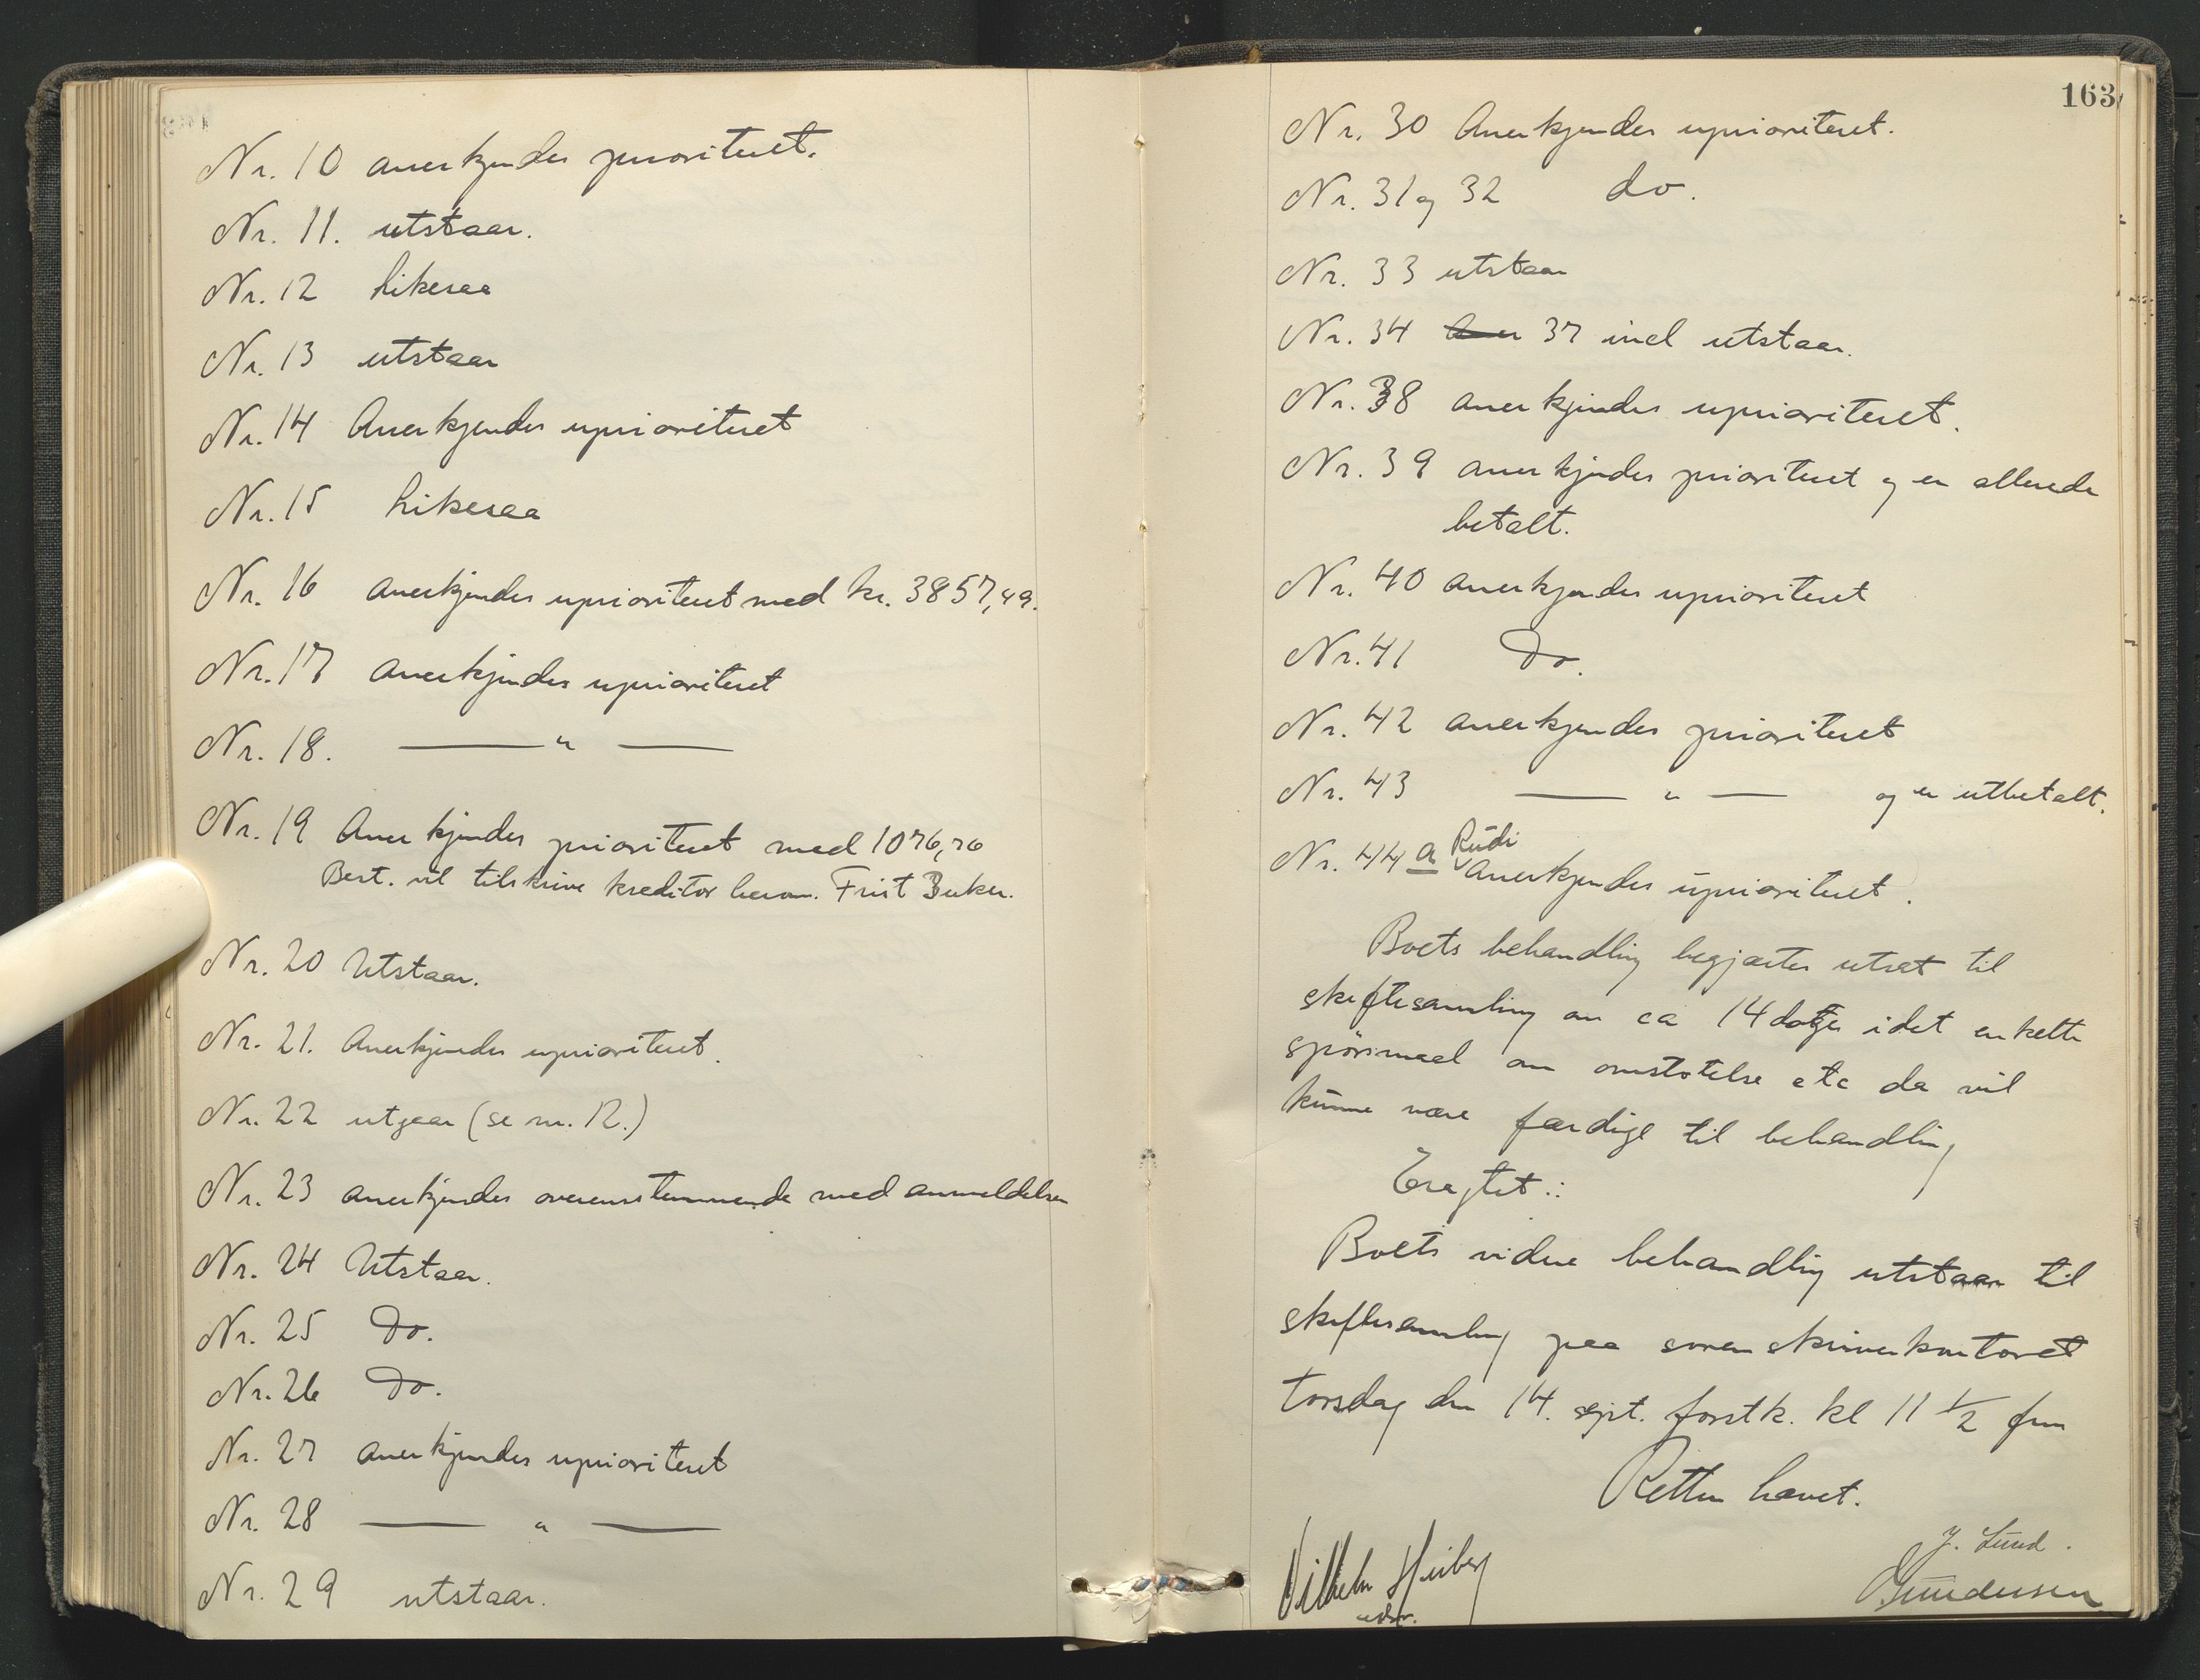 Nr. 10 anerkjendes prioritert.
Nr. 11. utstaar.
Nr. 12 likesaa
Nr. 13 utstaar
Nr. 14 Anerkjendes uprioritert
Nr. 15 Likesaa
Nr. 16 anerkjendes uprioritert med kr. 3857,49.
Nr. 17 anerkjendes uprioritert
Nr. 18. — " —
Nr. 19 Anerkjendes prioritert med 1076,76
Best. vil tilskrive kreditor herom. Frist 3 uker.
Nr. 20 Utstaar.
Nr. 21. Anerkjendes uprioritert.
Nr. 22 utgaar (se nr. 12.)
Nr. 23 anerkjendes overensstemmende med anmeldelsen
Nr. 24 Utstaar.
Nr. 25 Do.
Nr. 26 Do.
Nr. 27 anerkjendes uprioritert
Nr. 28 — " —
Nr. 29 utstaar.
163
Nr. 30 Anerkjendes uprioritert.
Nr. 31 og 32 do.
Nr. 33 utstaar
Nr. 34 Aner 37 incl utstaar.
Nr. 38 anerkjendes uprioritert.
Nr. 39 anerkjendes prioritert og er allerede
betalt.
Nr. 40 anerkjendes uprioritert
Nr. 41 Do.
Nr. 42 anerkjendes prioritert
Nr. 43 — " — og er utbetalt.
Nr. 44 a Rudi Anerkjendes uprioritert.
Boets behandling begjærtes utsat til
skiftesamling om ca 14 dage idet enkelte
spörsmaal om omstötelse etc da vil
kunne være færdige til behandling
Eragtet:
Boets videre behandling utstaar til
skiftesamling paa sorenskriverkontoret
torsdag den 14. sept. förstk. kl 11 1/2 fm
Retten hævet.
J. Lund.
Vilhelm Heiberg
Gundersen